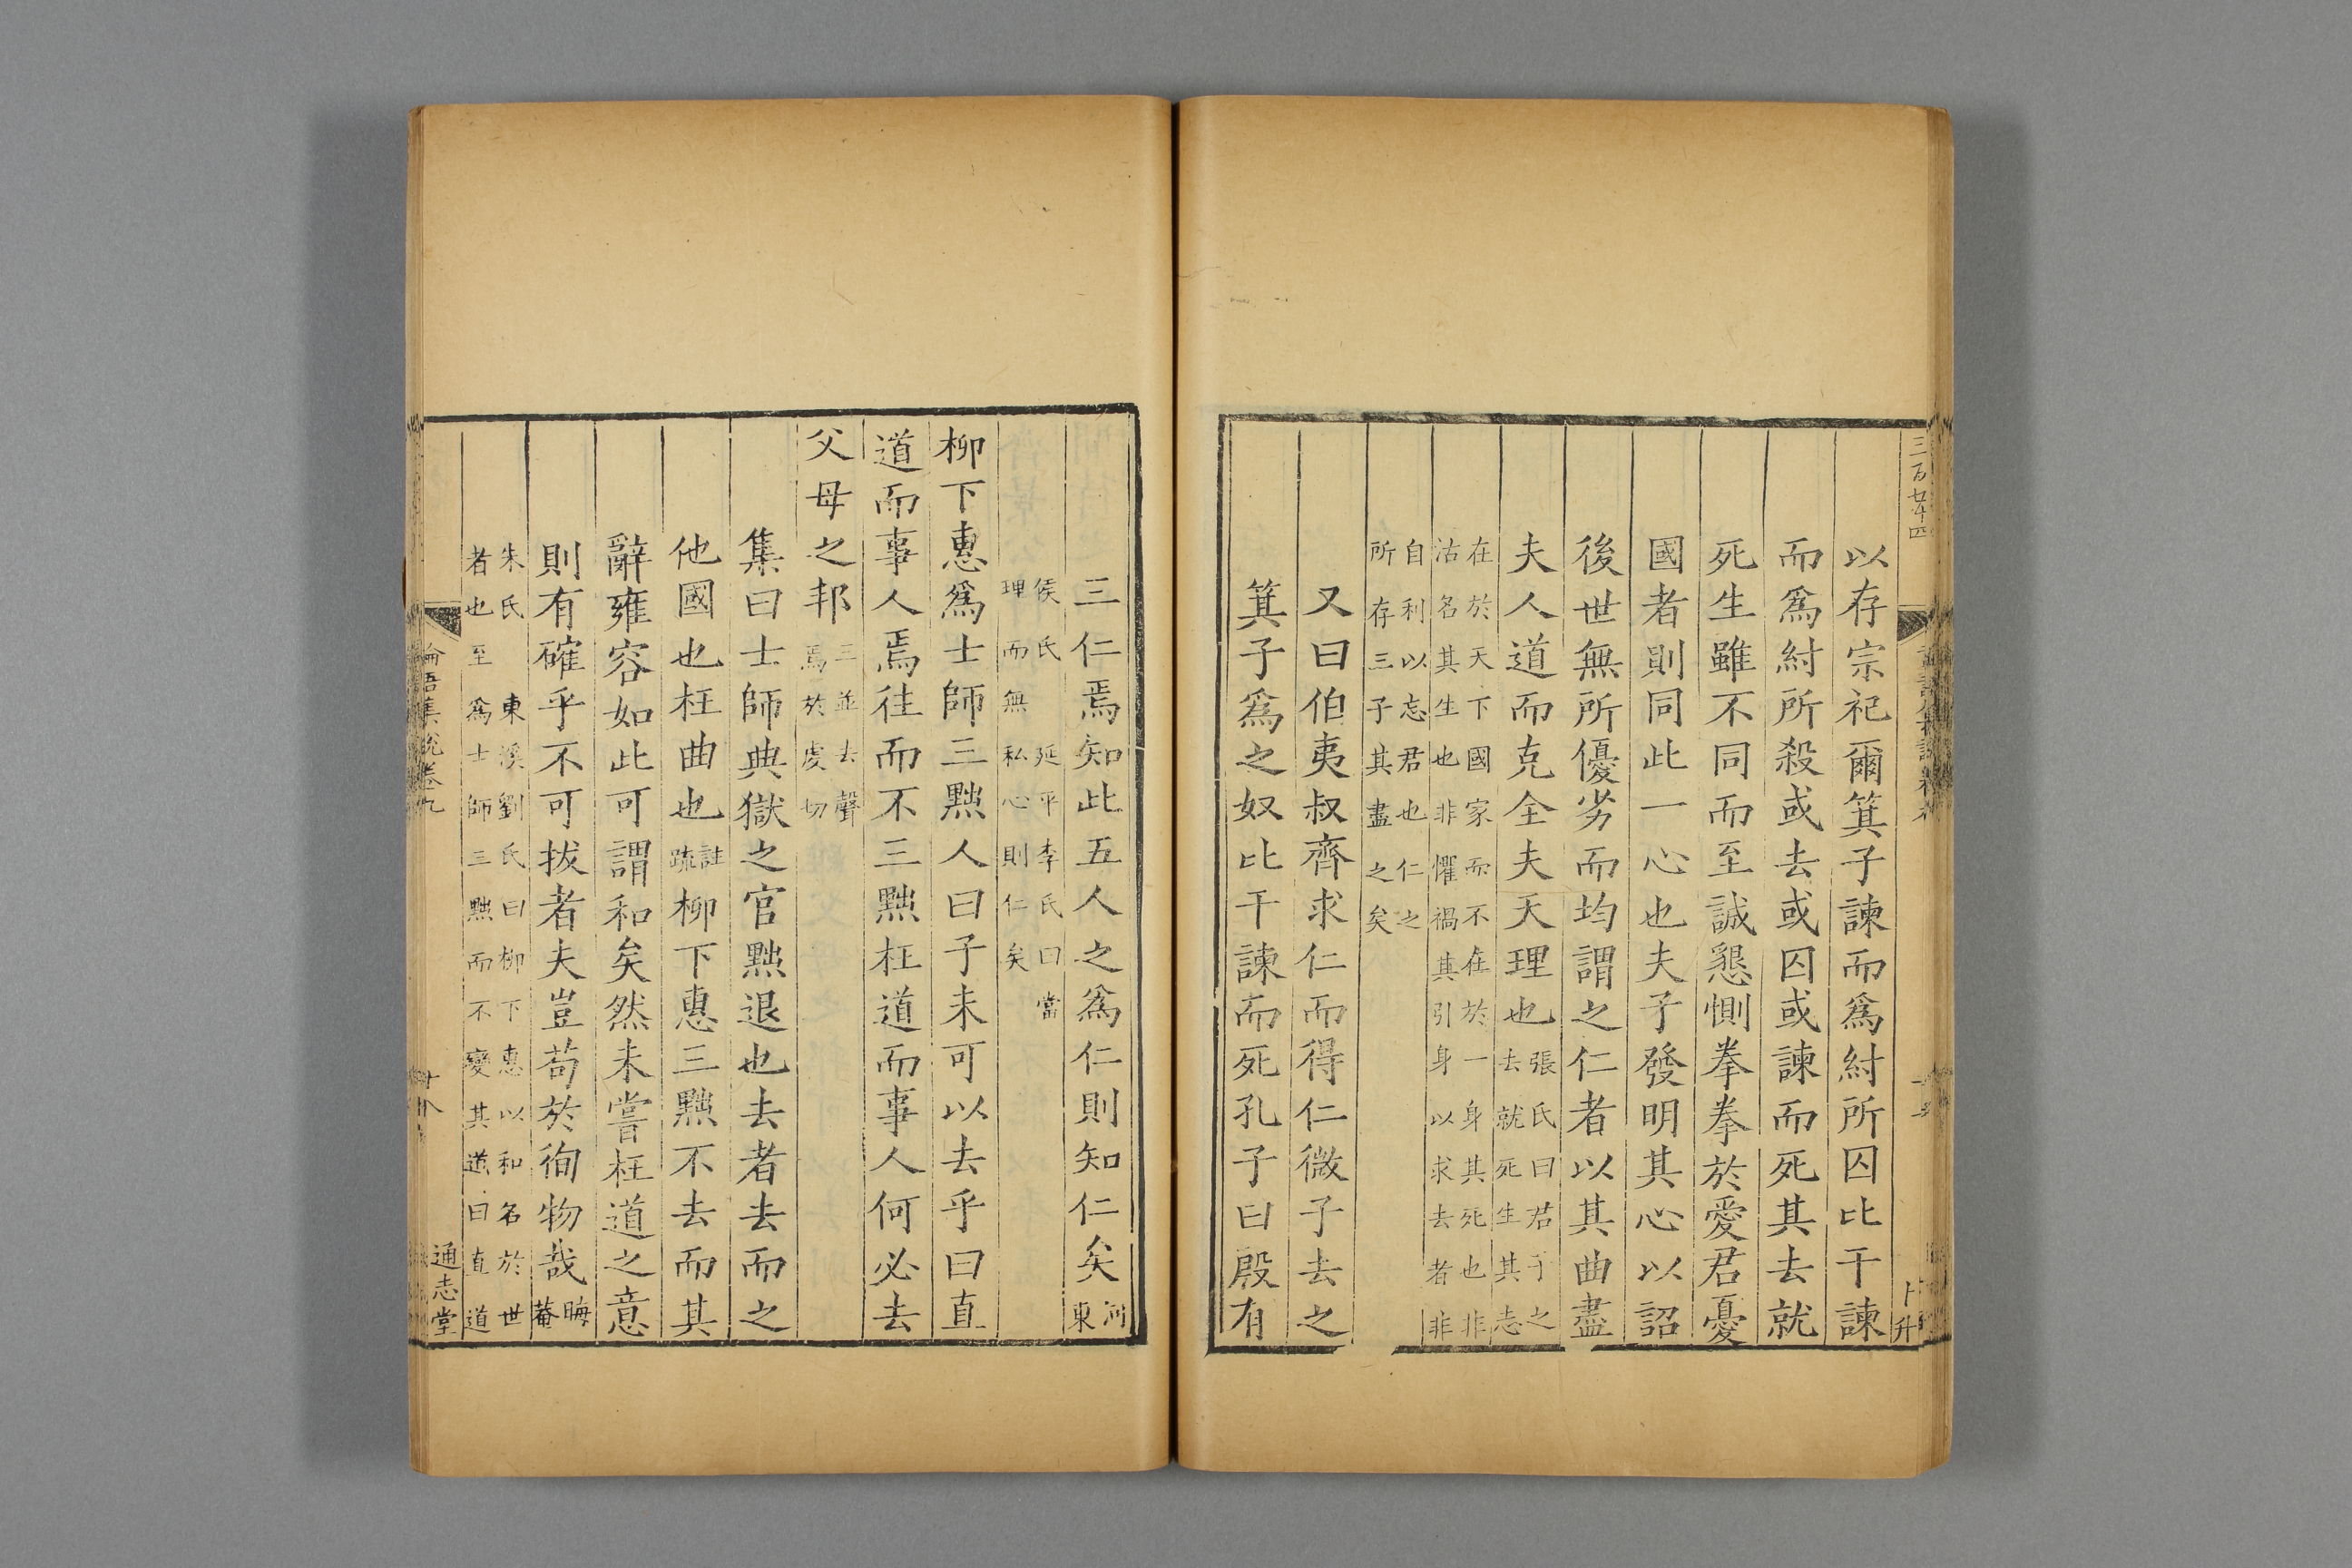 三百廿四
卜升
以存宗祀爾箕子諫而為紂所囚比干諫
而為紂所殺或去或囚或諫而死其去就
死生雖不同而至誠懇惻拳拳於愛君憂
國者則同此一心也夫子發明其心以詔
後世無所優劣而均謂之仁者以其曲盡
夫人道而克全夫天理也張氏曰君子之去就死生其志
在於天下國家而不在於一身其死也非
沽名其生也非懼禍其引身以求去者非
自利以忘君也仁之
所存三子其盡之矣
又曰伯夷叔齊求仁而得仁微子去之
箕子為之奴比干諫而死孔子曰殷有
三仁焉知此五人之為仁則知仁矣河東
侯氏 延平李氏曰當
理而無私心則仁矣
柳下惠為士師三黜人曰子未可以去乎曰直
道而事人焉往而不三黜枉道而事人何必去
父母之邦三並去聲焉於虔切
集曰士師典獄之官黜退也去者去而之
他國也枉曲也註疏柳下惠三黜不去而其
辭雍容如此可謂和矣然未嘗枉道之意
則有確乎不可拔者夫豈苟於徇物哉晦菴
朱氏 東溪劉氏曰柳下惠以和名於世
者也至為士師三黜而不變其道曰直道
論語集說卷九
十八
通志堂